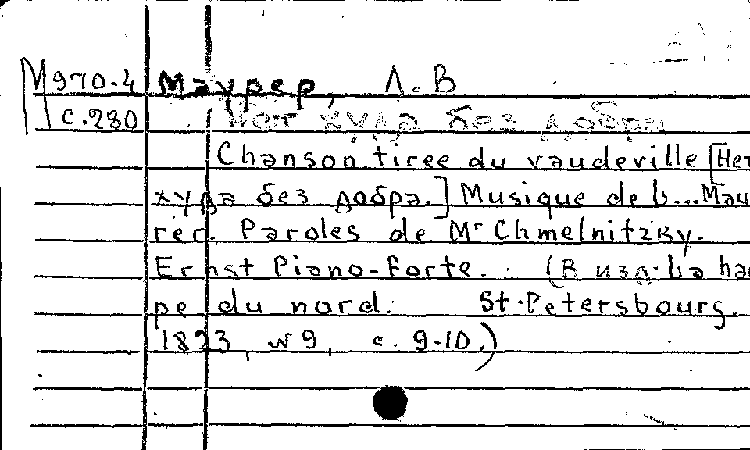 М970.4 Маурер, Л.В
с.280 Нет худа без добра
Chanson tiree du vaudeville [Нет
худа без добра.] Musique de L... Mau
rer. Paroles de Mr Chmelnitzky.
Ernst Piano-forte. (В изд. La har
pe du nord. St-Petersbourg.
1823, N 9, с. 9-10.)